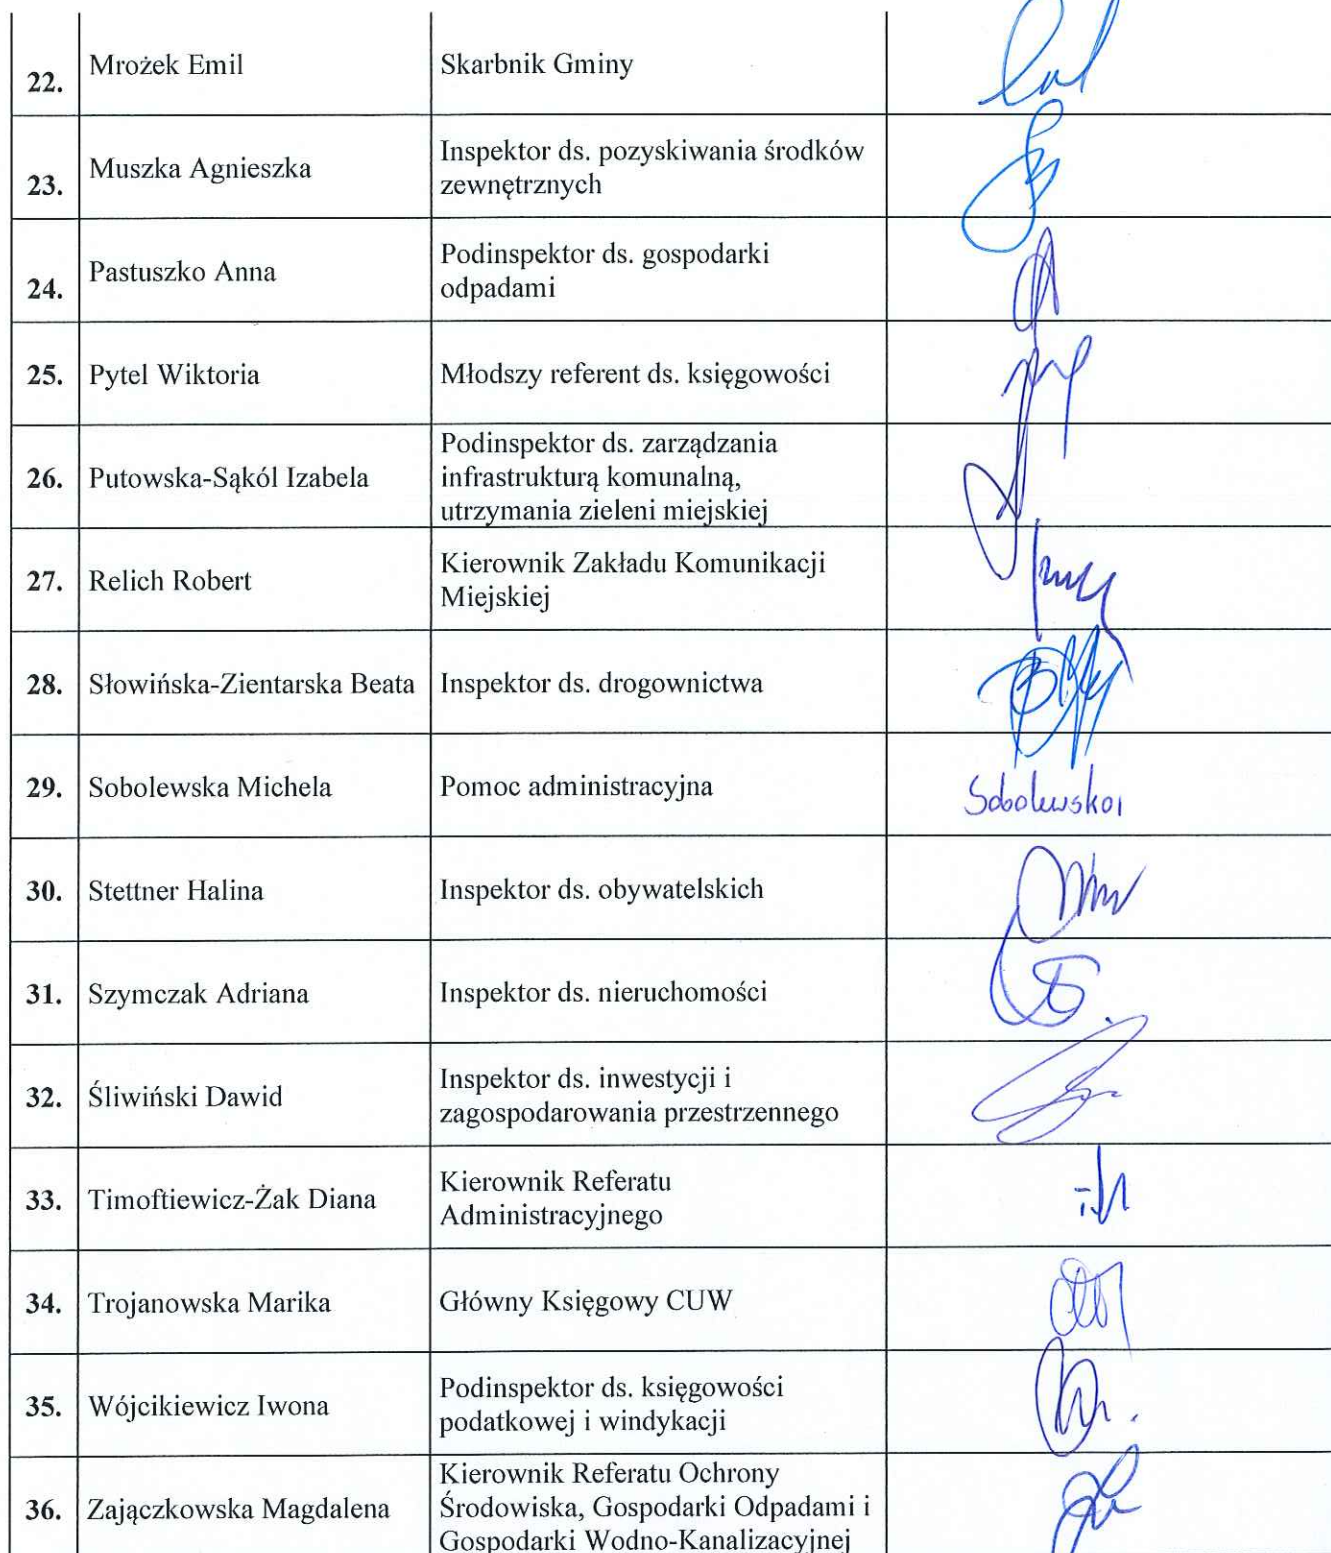 22. Mrożek Emil Skarbnik Gminy
23. Muszka Agnieszka Inspektor ds. pozyskiwania środków
zewnętrznych
24. Pastuszko Anna Podinspektor ds. gospodarki
odpadami
25. Pytel Wiktoria Młodszy referent ds. księgowości
26. Putowska-Sąkól Izabela Podinspektor ds. zarządzania
infrastrukturą komunalną,
utrzymania zieleni miejskiej
27. Relich Robert Kierownik Zakładu Komunikacji
Miejskiej
28. Słowińska-Zientarska Beata Inspektor ds. drogownictwa
29. Sobolewska Michela Pomoc administracyjna Sobolewska
30. Stettner Halina Inspektor ds. obywatelskich
31. Szymczak Adriana Inspektor ds. nieruchomości
32. Śliwiński Dawid Inspektor ds. inwestycji i
zagospodarowania przestrzennego
33. Timoftiewicz-Żak Diana Kierownik Referatu
Administracyjnego
34. Trojanowska Marika Główny Księgowy CUW
35. Wójcikiewicz Iwona Podinspektor ds. księgowości
podatkowej i windykacji
36. Zajączkowska Magdalena Kierownik Referatu Ochrony
Środowiska, Gospodarki Odpadami i
Gospodarki Wodno-Kanalizacyjnej